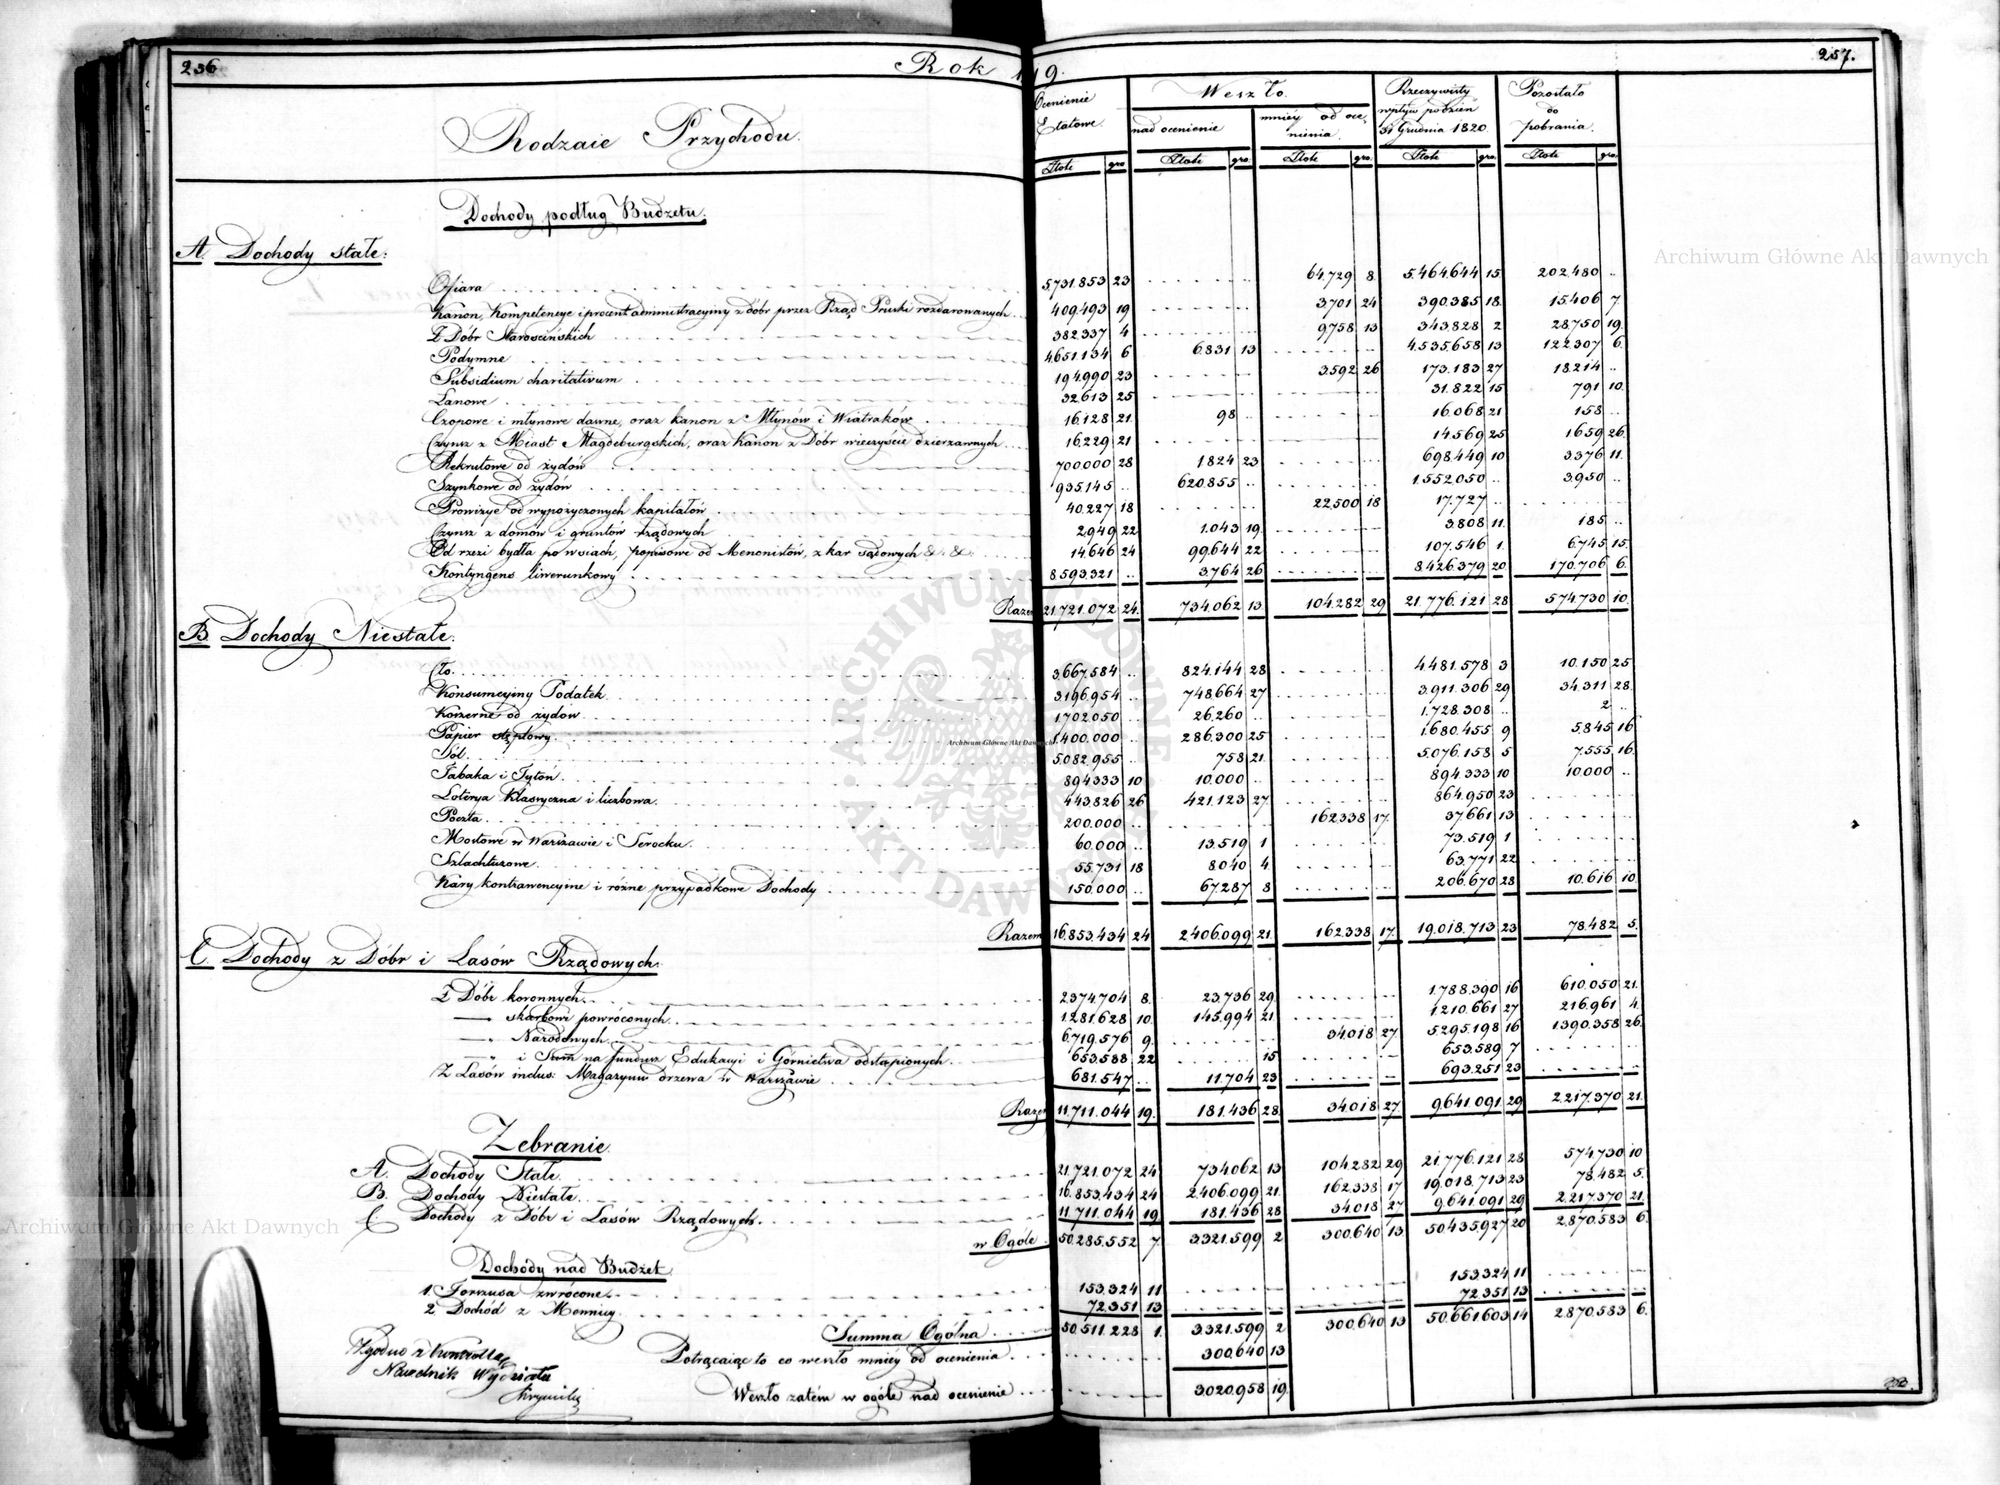 236
Rok 1819.
237.
Rodzaie Przychodu.
Ocenienie Etatowe.
Weszło.
nad ocenienie
mniéy od ocenienia.
Rzeczywisty wpływ po dzień 31 Grudnia 1820.
Pozostało do pobrania.
Złote gro Złote gro. Złote gro. Złote gro. Złote gro.
Dochody podług Budżetu.
A. Dochody stałe:
Ofiara 5731.853 23 64.729 8. 5.464.644 15 202.480
Kanon, Kompetencye i procent administracyjny z dóbr przez Rząd Pruski rozdarowanych 409.493 19 3701 24 390.385 18. 15.406 7.
Z Dóbr Starościńskich 382.337 4 9.758 13 343.828 2 28.750 19.
Podymne 4.651.134 6 6.831 13 4.535.658 13 122.307 6.
Subsidium charitativum 194.990 23 3.592 26 173.183 27 18.214
Łanowe 32.613 25 31.822 15 791 10.
Czopowe i młynowe dawne, oraz kanon z Młynów i Wiatraków 16.128 21. 98 16.068 21 158
Czynsz z Miast Magdeburgskich, oraz Kanon z Dóbr wieczyście dzierżawnych 16.229 21 14.569 25 1.659 26.
Rekrutowe od żydów 700.000 28 1.824 23 698.449 10 3.376 11.
Szynkowe od żydów 935.145 620.855 1.552.050 3.950
Prowizye od wypożyczonych kapitałów 40.227 18 22.500 18 17.727
Czynsz z domów i gruntów rządowych 2.949 22 1.043 19 3.808 11. 185
Od rzezi bydła po wsiach, popisowe od Menonistów, z kar sądowych &c. &c. 14.646 24 99.644 22 107.546 1. 6.745 15.
Kontyngens liwerunkowy 8.593.321 3.764 26 8.426.379 20 170.706 6.
Razem 21.721.072 24. 734.062 13. 104.282 29 21.776.121 28 574.730 10.
B. Dochody Niestałe.
Cło. 3.667.584 824.144 28 4.481.578 3 10.150 25
Konsumcyiny Podatek 3.196.954 748.664 27 3.911.306 29 34.311 28.
Koszerne od żydów 1.702.050 26.260 1.728.308 2
Papier stęplowy 1.400.000 286.300 25 1.680.455 9 5.845 16
Sól 5.082.955 758 21. 5.076.158 5 7.555 16.
Tabaka i Tytoń 894.333 10 10.000 894.333 10 10.000
Loterya klasyczna i liczbowa. 443.826 26 421.123 27. 864.950 23
Poczta 200.000 162.338 17. 37.661 13
Mostowe w Warszawie i Serocku. 60.000 13.519 1 73.519 1
Szlachtuzowe. 55.731 18 8.040 4 63.771 22
Kary kontrawencyine i różne przypadkowe Dochody 150.000 67.287 8 206.670 28 10.616 10
Razem 16.853.434 24 2.406.099 21. 162.338 17. 19.018.713 23 78.482 5.
C. Dochody z Dóbr i Lasów Rządowych.
Z Dóbr koronnych 2.374.704 8. 23.736 29. 1.788.390 16 610.050 21.
— skarbowi powróconych 1.281.628 10. 145.994 21 1.210.661 27 216.961 4.
— Narodowych 6.719.576 9. 34.018 27. 5.295.198 16 1.390.358 26.
— i Sum na fundusz Edukacyi i Górnictwa odstąpionych 653.588 22 15 653.589 7
Z Lasów inclus: Magazynu drzewa w Warszawie 681.547 11.704 23 693.251 23
Razem 11.711.044 19. 181.436 28. 34.018 27. 9.641.091 29 2.217.370 21.
Zebranie.
A. Dochody Stałe 21.721.072 24 734.062 13 104.282 29 21.776.121 28 574.730 10
B. Dochody Niestałe 16.853.434 24 2.406.099 21. 162.338 17 19.018.713 23 78.482 5.
C Dochody z Dóbr i Lasów Rządowych. 11.711.044 19 181.436 28 34.018 27 9.641.091 29 2.217.370 21.
w Ogóle 50.285.552 7 3.321.599 2 300.640 13 50.435.927 20 2.870.583 6.
Dochody nad Budżet
1. Forszusa zwrócone 153.324 11 153.324 11
2 Dochód z Mennicy 72.351 13 72.351 13
Summa Ogólna 50.511.228 1. 3.321.599 2 300.640 13 50.661.603 14 2.870.583 6.
Potrącaiąc to co weszło mniéy od ocenienia 300.640 13
Weszło zatém w ogóle nad ocenienie 3.020.958 19.
Zgodno z Kontrollą
Naczelnik Wydziału
Archiwum Główne Akt Dawnych
Archiwum Główne Akt Dawnych
Archiwum Główne Akt Dawnych
ARCHIWUM GŁÓWNE AKT DAWNYCH